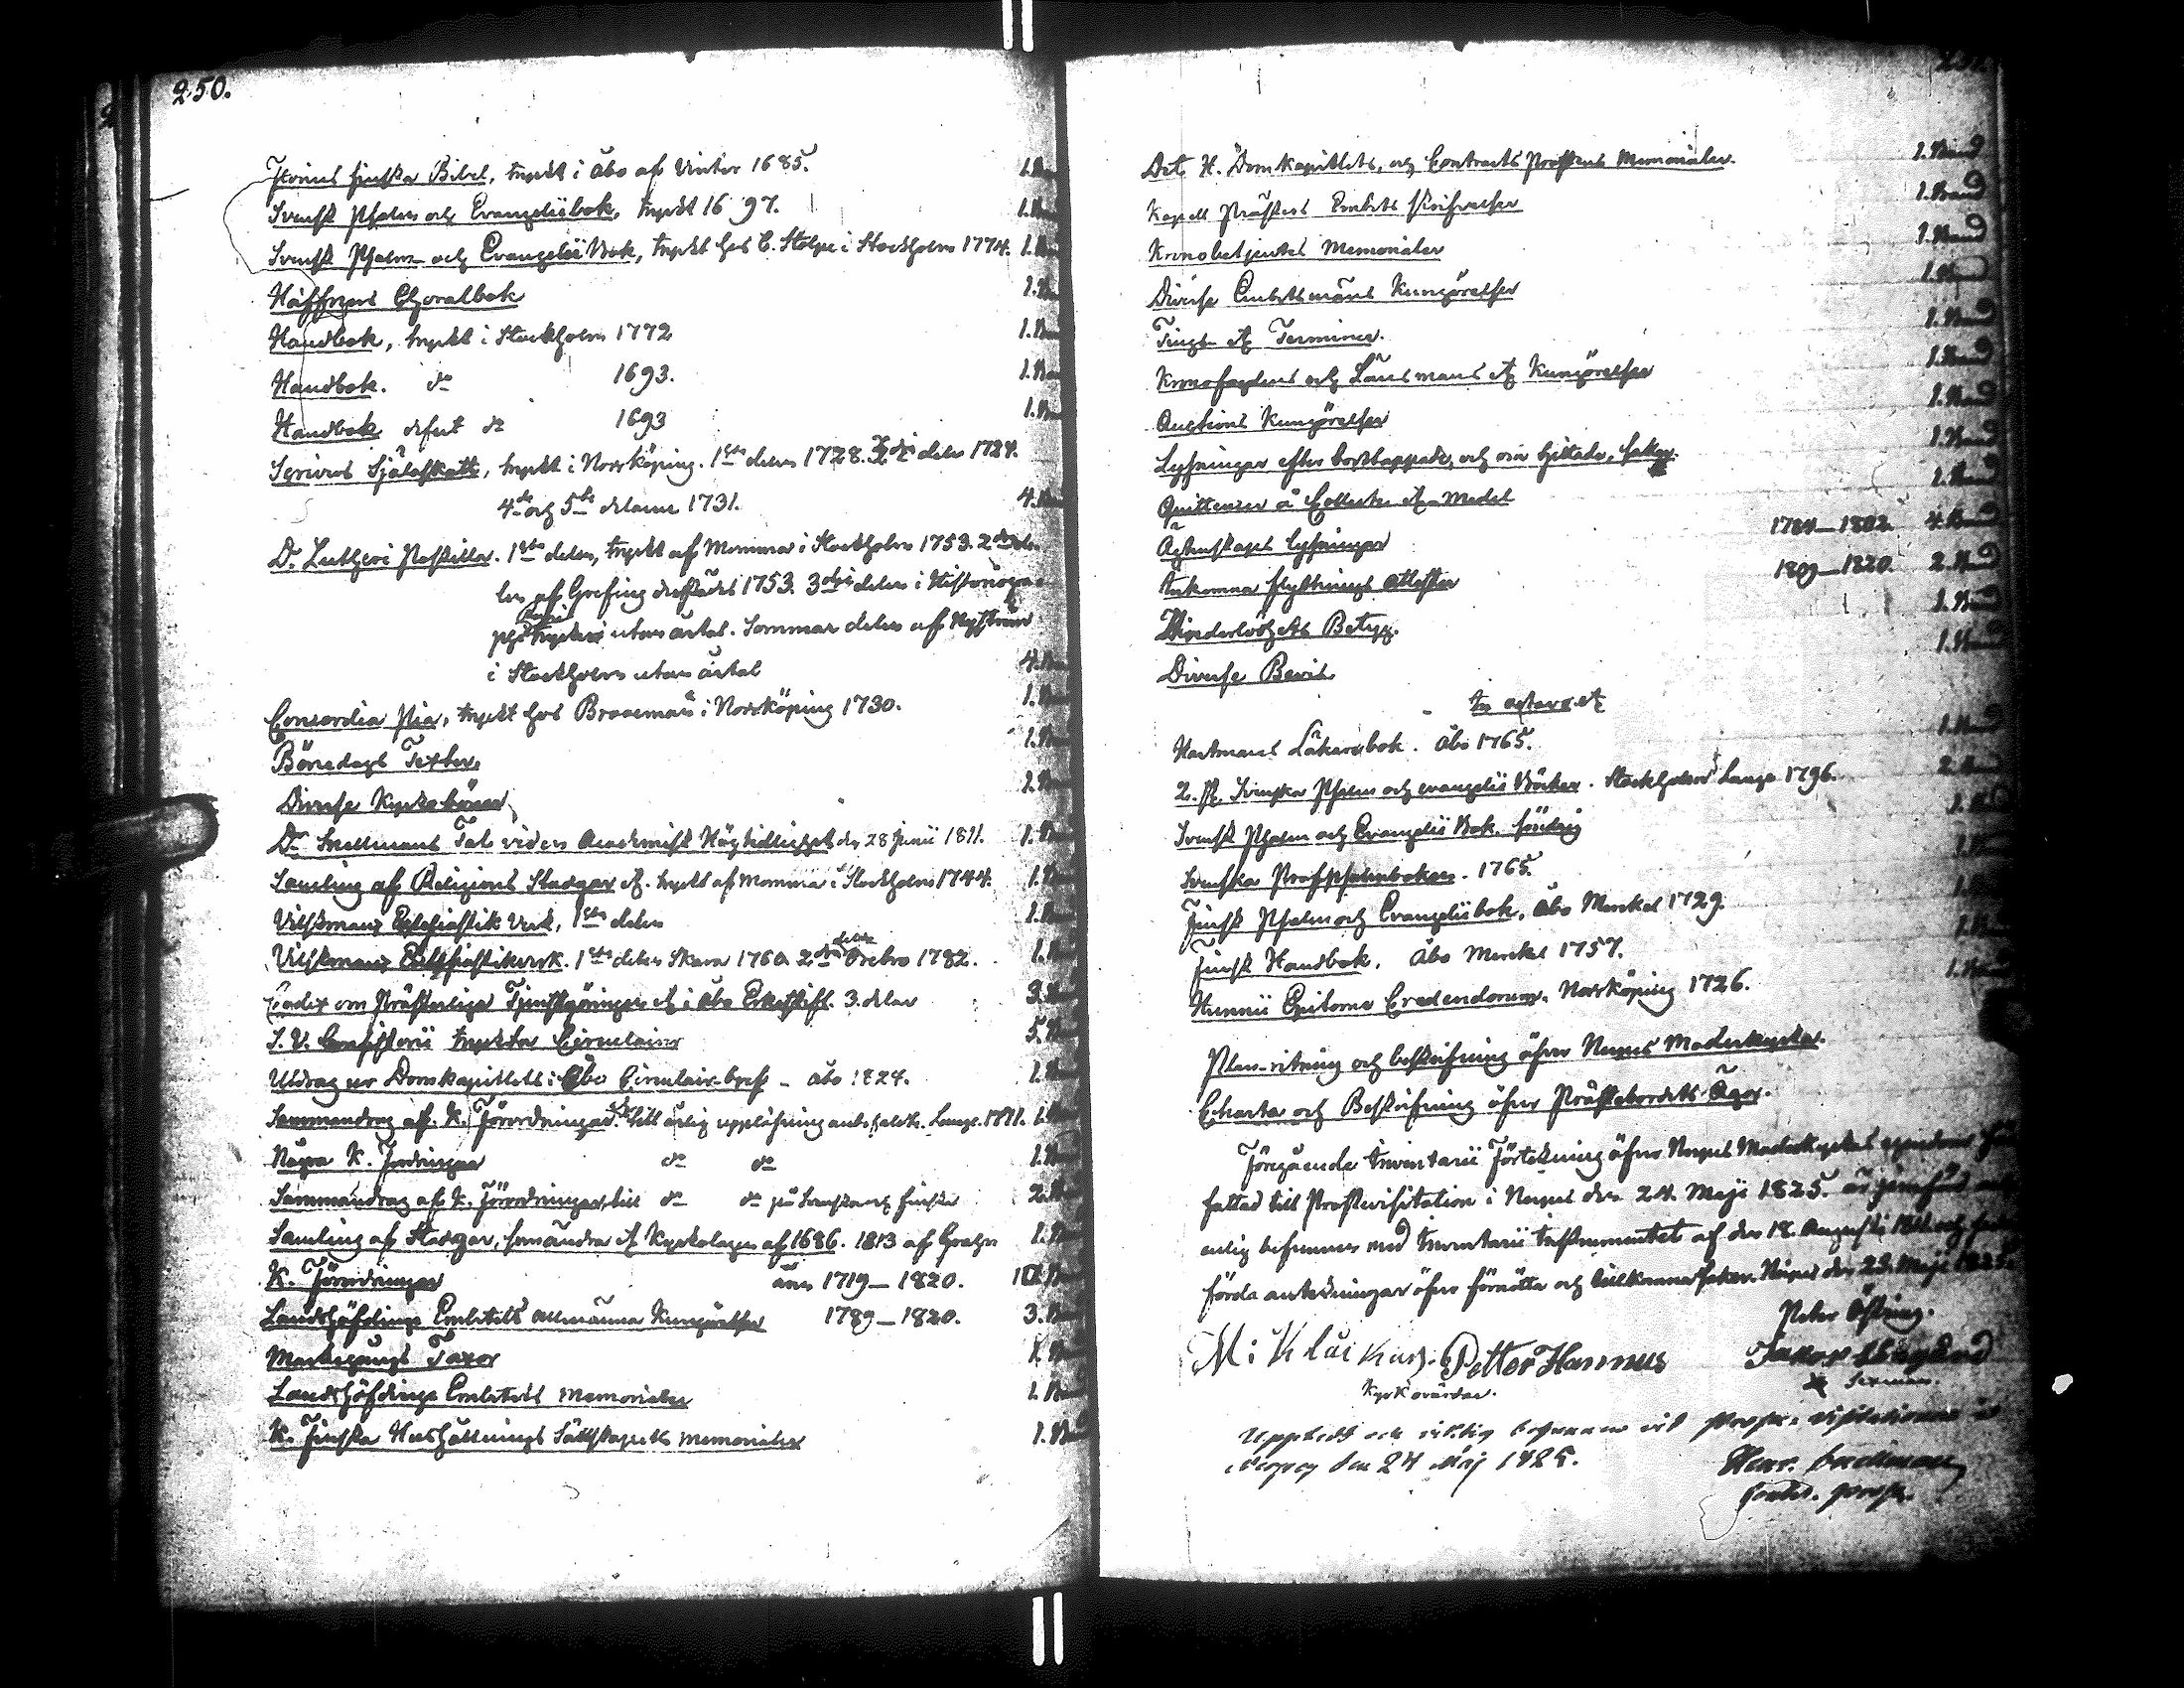 250.
Florini finska Bibel, tryckt i Åbo af Vinter 1685. 1. Band
Svensk Psalm och Evangeliibok, tryckt 1697. 1. Band
Svensk Psalm och Evangelii Bok, tryckt hos C. Stolpe i Stockholm 1774. 1. Band
Häffners Choralbok 1. Band
Handbok, tryckt i Stockholm 1772 1. Band
Handbok. do 1693. 1. Band
Handbok defect do 1693 1. Band
Scrivers Själaskatt, tryckt i Norrköping. 1sta delen 1728. delen 1724.
4de och 5te delarne 1731. 4. Band
Dr Lutheri Postilla. 1sta delen, tryckt af Momma i Stockholm 1753. 2dra de-
len af Grefing dersädes 1753. 3dje delen i Historiogra-
utan årtal. Sommar delen af Nyström
i Stockholm utan årtal 4. Band
Concordia Pia, tryckt hos Brodeman i Norrköping 1730. 1. Band
Bönedags Texter, 1. Band
Diverse Kyrkoböner 1. Band
Dr Snellmans Tal vid en Academisk Höghtidlighet den 28 Junii 1811. 1. Band
Samling af Religions Stadgar &. tryckt af Momma i Stockholm 1744. 1. Band
Vilskmans Ecclesiastik Verk, 1sta delen 1. Band
Vilskmans Ecclesiastikverk. 1sta delen Skara 1760. 2dra delen Örebro 1782. 1. Band
Codex om Prästerliga Tjenstgöringen & i Åbo Erkestift. 3. delar 3. Band
S. V. Consistorii tryckta Circulairer 5. Band
Utdrag ur Domkapitlets i Åbo Circulair-bref - Åbo 1824. 1. Band
Sammandrag af K. Förordningar till årlig uppläsning 1. Band
Några K. Förordningar do do 1. Band
Sammandrag af K. Förordningar, till do do på Svenska och finska 2. Band
Samling af Stadgar, & Kyrkolagen af 1686. 1813 af 1. Band
K. Förordningar åren 1719–1820. Band
Landshöfdinge Embetets allmänna Kungörelser 1789–1820. 3. Band
Markegångs Taxor 1. Band
Landshöfdinge Embetets Memorialer 1. Band
K. Finska Hushållnings Sällskapets Memorialer 1. Band
Det H. Domkapitlets, och Contracts Prostens Memorialer. 1. Band
Kapell Prästers Embets skrifvelser 1. Band
Kronobetjentes Memorialer 1. Band
Diverse Embetsmäns Kungörelser 1. Band
Tings & Terminer. 1. Band
Kronofogdens och Länsmans & Kungörelser 1. Band
Auctions Kungörelser 1. Band
Lysningar efter borttappade, och om hittade, saker. 1. Band
Quittencer å Collecter & Medel 1. Band
Äktenskaps lysningar 1784–1802. 4. Band
Inkomna flyttnings Attester 1809–1820. 2. Band
Hinderlöshets Betyg. 1. Band
Diverse Bevis. 1. Band
In octavo &
Hartmans Läkarebok. Åbo 1765. 1. Band
2. st. Svenska Psalm och evangelii Böcker. Stockholm Lange 1796. 2. Band
Svensk Psalm och Evangelii Bok. söndrig 1. Band
Svenska Profpsalmboken. 1765. 1. Band
Finsk Psalm och Evangelii bok, Åbo Merckel 1729.
Finsk Handbok, Åbo Merckel 1757. 1. Band
Hunnii Epitome Credendorum, Norrköping 1726. 1. Band
Plan-ritning och beskrifning öfver Nerpes Moderkyrka.
Charta och Beskrifning öfver Prästebordets Ägor.
Föregående Inventarii Förtekning öfver Nerpes Moderkyrkas egendom
fattad till Prostvisitation i Nerpes den 24. Maji 1825. är jemförd och
enlig befunnen med Inventarii Instrumentet af den 18. Augusti
förda anteckningar öfver förnötta och tillkomna saker. Nerpes den 23. Maji 1825.
Peter Östring.
Petter Hannus
Kyrkovärdar. Sexman.
Uppläst och riktig befunnen vid Prosts visitationen i
Nerpes den 24 Maj 1825.
Henr. Snellman
Contr. prost.